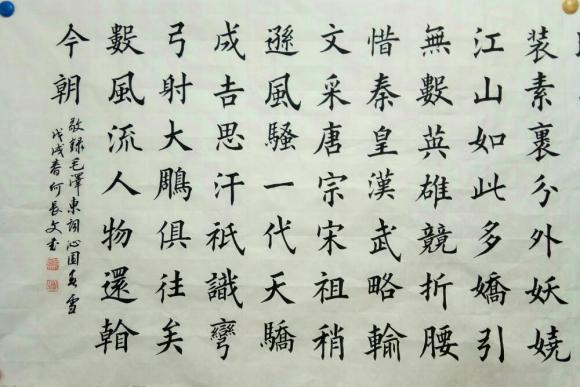 装素裹分外妖嬈
江山如此多嬌引
無數英雄競折腰
惜秦皇漢武略輸
文采唐宗宋祖稍
遜風騷一代天驕
成吉思汗祇識彎
弓射大鵰俱往矣
數風流人物還
今朝
敬録毛澤東詞沁園春雪
戊戌春何長文書